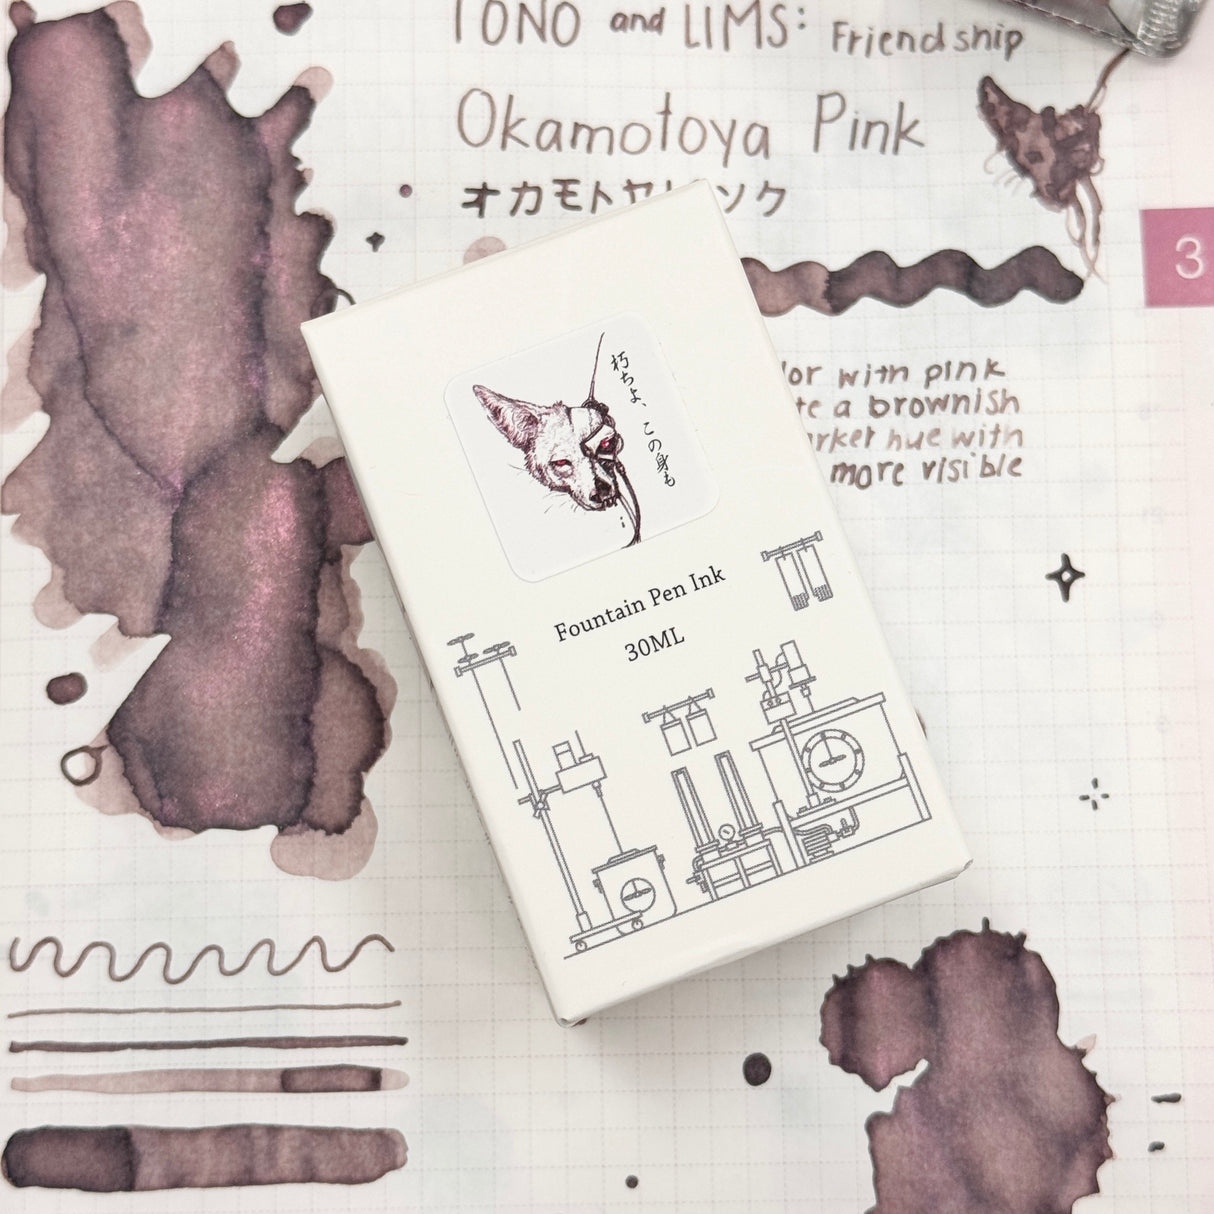 TONO and LIMS: Friendship
Okamotoya Pink
オカモトヤピンク
3
with pink
a brownish
hue with
more visible
朽ちよ、この身も
Fountain Pen Ink
30ML